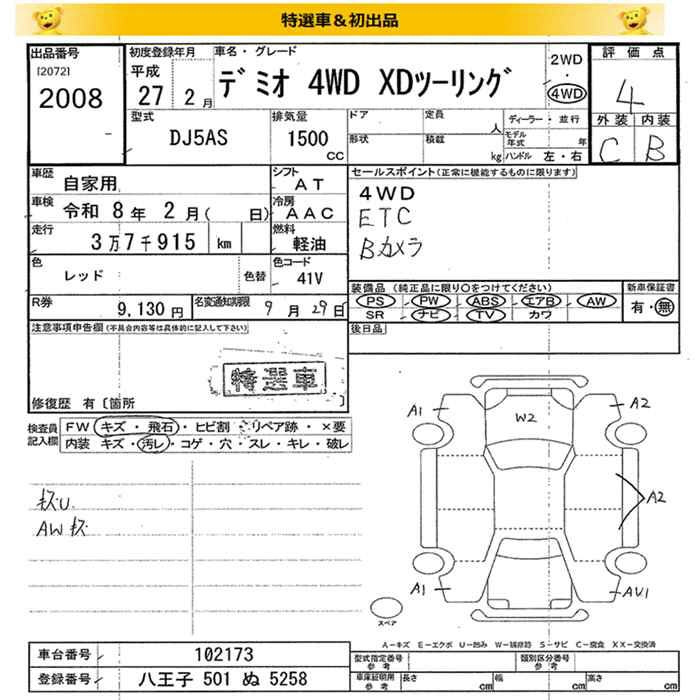 特選車＆初出品
出品番号
[2072]
2008
初度登録年月
平成
27 2月
車名・グレード
デミオ 4WD XDツーリング
2WD
・
4WD
評価点
4
外装 内装
C B
型式
DJ5AS
排気量
1500
CC
ドア
形状
定員
人
積載
kg
ディーラー・並行
モデル年式 年
ハンドル 左・右
車歴
自家用
シフト
AT
車検
令和 8年 2月( 日)
冷房
AAC
走行
3万7千915 km
燃料
軽油
色
レッド
色替
色コード
41V
R券
9,130円
名変通知期限
9月29日
セールスポイント(正常に機能するものに限ります)
4WD
ETC
Bカメラ
装備品(純正品に限り○をつけてください)
PS PW ABS エアB AW
SR ナビ TV カワ
新車保証書
有・無
後日品
注意事項申告欄(不具合内容等は具体的に記入して下さい)
特選車
修復歴 有〔箇所 〕
検査員記入欄
FW キズ・飛石・ヒビ割・リペア跡・×要
内装 キズ・汚レ・コゲ・穴・スレ・キレ・破レ
キズU
AWキズ
A1
W2
A2
A2
A1
AV1
スペア
A－キズ E－エクボ U－凹み W－補修跡 S－サビ C－腐食 XX－交換済
車台番号
102173
登録番号
八王子 501 ぬ 5258
型式指定番号
参考
類別区分番号
参考
車庫証明用
参考
長さ cm
幅 cm
高さ cm